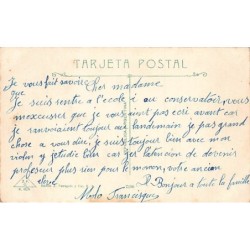 TARJETA POSTAL
Cher madame
Je vous fait savoire
que
Je suis rentre a l'ecole i au conservatoir, vous
m'excuserer que je vous aint pas ecri avant car
je ranvoiaint toujour au landemain je pas grand
chose a vou dire, je suis toujour bien avec mon
violon y j'etudie bien car j'ai l'atencion de devenir
profeseur plus rien pour le moment, votre ancien
eleve
P. Bonjour a toute la famille
Moto Francisque